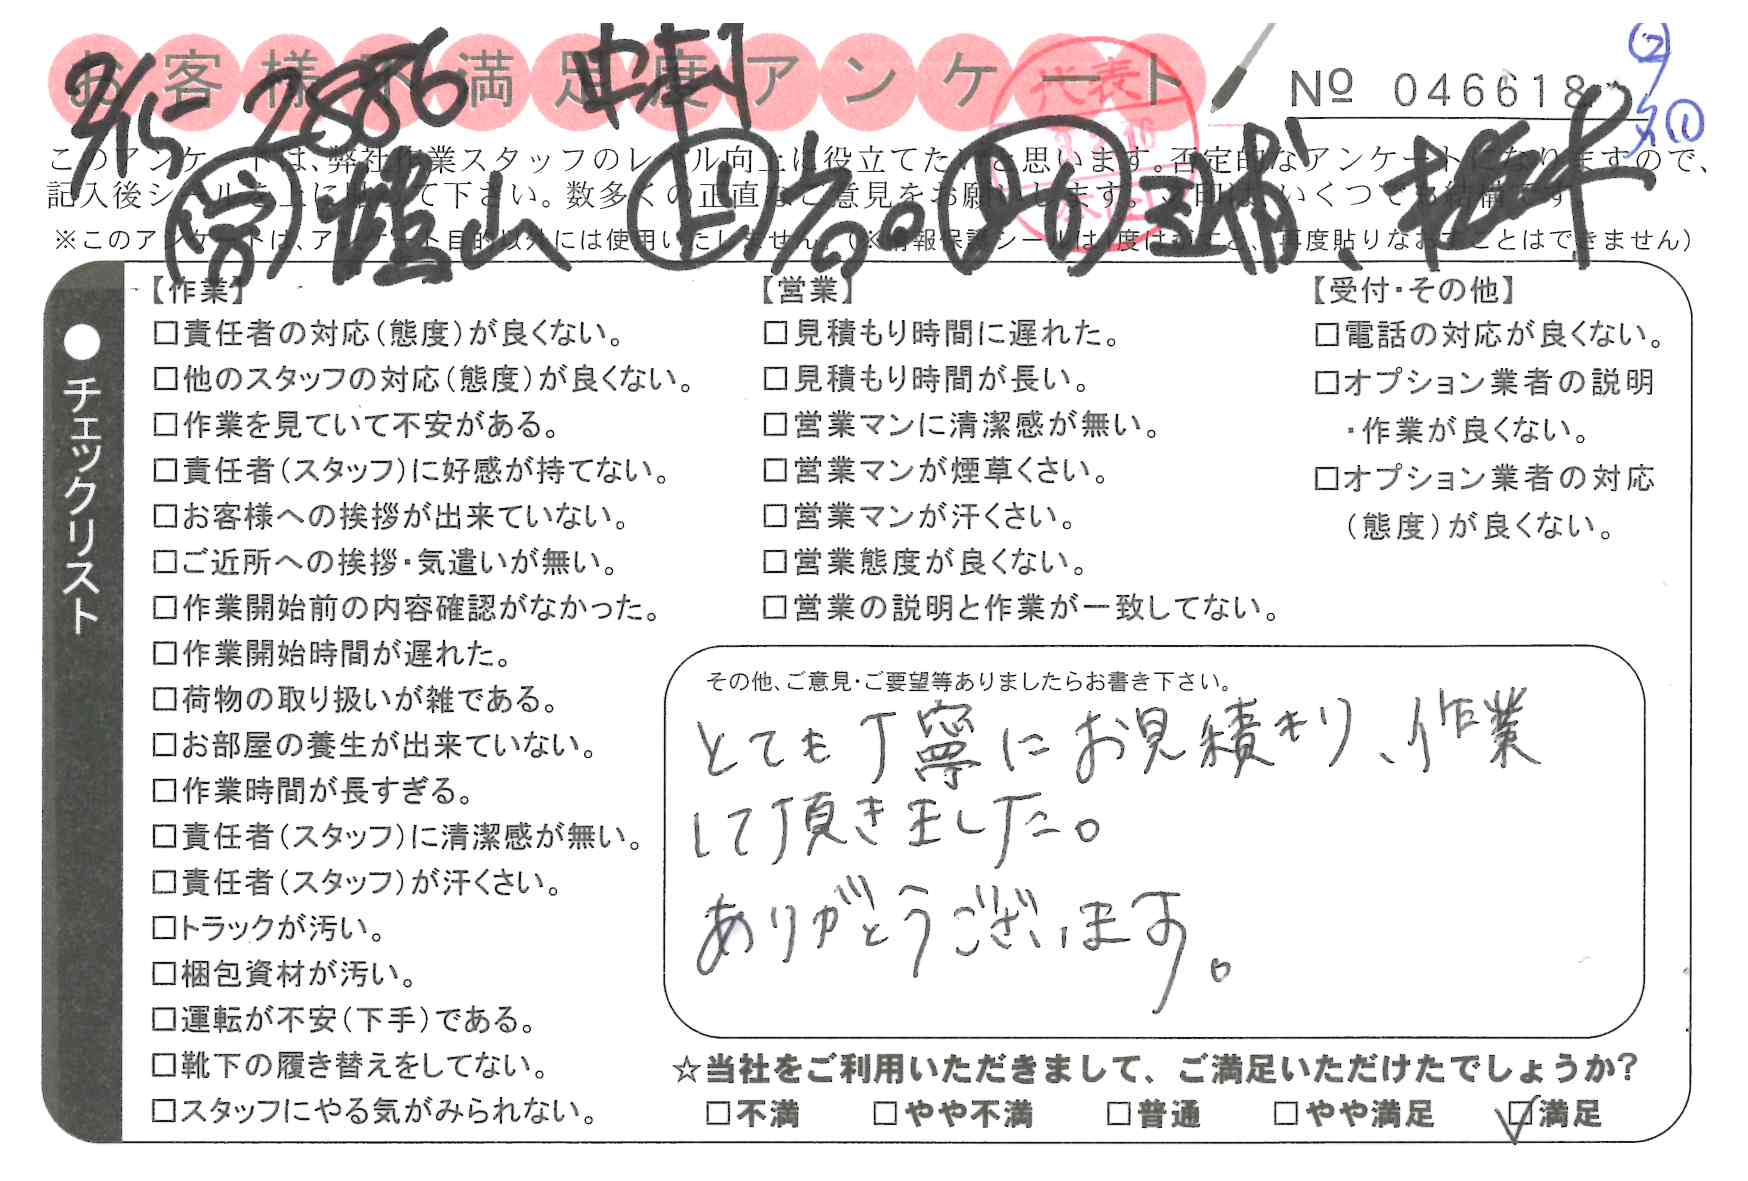 お客様不満足度アンケート
No 046618
② 
①
9/15 2886
このアンケートは、弊社作業スタッフのレベル向上に役立てたいと思います。否定的なアンケートになりますので、
記入後シールを上に貼って下さい。数多くの正直なご意見をお願いします。✓印は、いくつでも結構です
※このアンケートは、アンケート目的以外には使用いたしません。(※情報保護シールは1度はがすと、再度貼りなおすことはできません)
代表
●チェックリスト
【作業】
□責任者の対応(態度)が良くない。
□他のスタッフの対応(態度)が良くない。
□作業を見ていて不安がある。
□責任者(スタッフ)に好感が持てない。
□お客様への挨拶が出来ていない。
□ご近所への挨拶・気遣いが無い。
□作業開始前の内容確認がなかった。
□作業開始時間が遅れた。
□荷物の取り扱いが雑である。
□お部屋の養生が出来ていない。
□作業時間が長すぎる。
□責任者(スタッフ)に清潔感が無い。
□責任者(スタッフ)が汗くさい。
□トラックが汚い。
□梱包資材が汚い。
□運転が不安(下手)である。
□靴下の履き替えをしてない。
□スタッフにやる気がみられない。
【営業】
□見積もり時間に遅れた。
□見積もり時間が長い。
□営業マンに清潔感が無い。
□営業マンが煙草くさい。
□営業マンが汗くさい。
□営業態度が良くない。
□営業の説明と作業が一致してない。
【受付・その他】
□電話の対応が良くない。
□オプション業者の説明
・作業が良くない。
□オプション業者の対応
(態度)が良くない。
その他、ご意見・ご要望等ありましたらお書き下さい。
とても丁寧にお見積もり、作業
して頂きました。
ありがとうございます。
☆当社をご利用いただきまして、ご満足いただけたでしょうか?
□不満 □やや不満 □普通 □やや満足 ☑満足